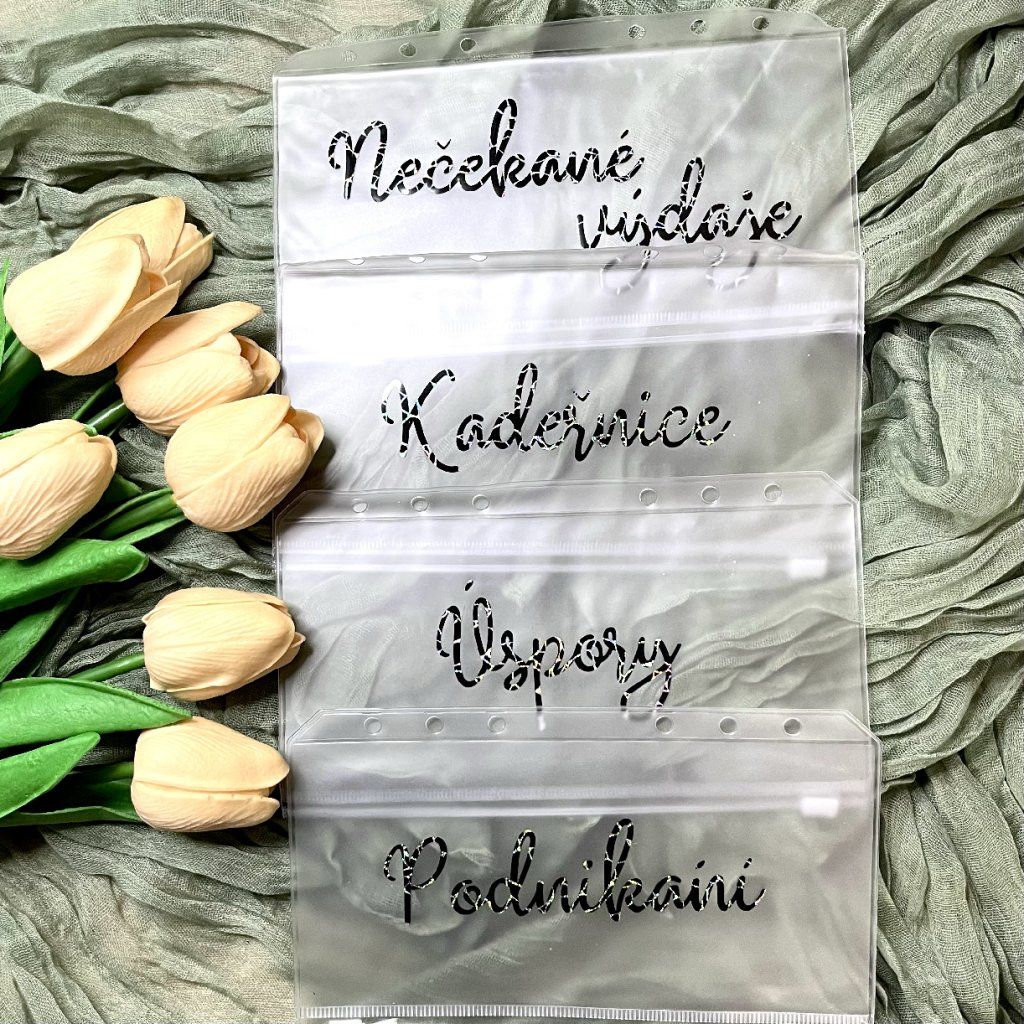 Nečekané
výdaje
Kadeřnice
Úspory
Podnikání